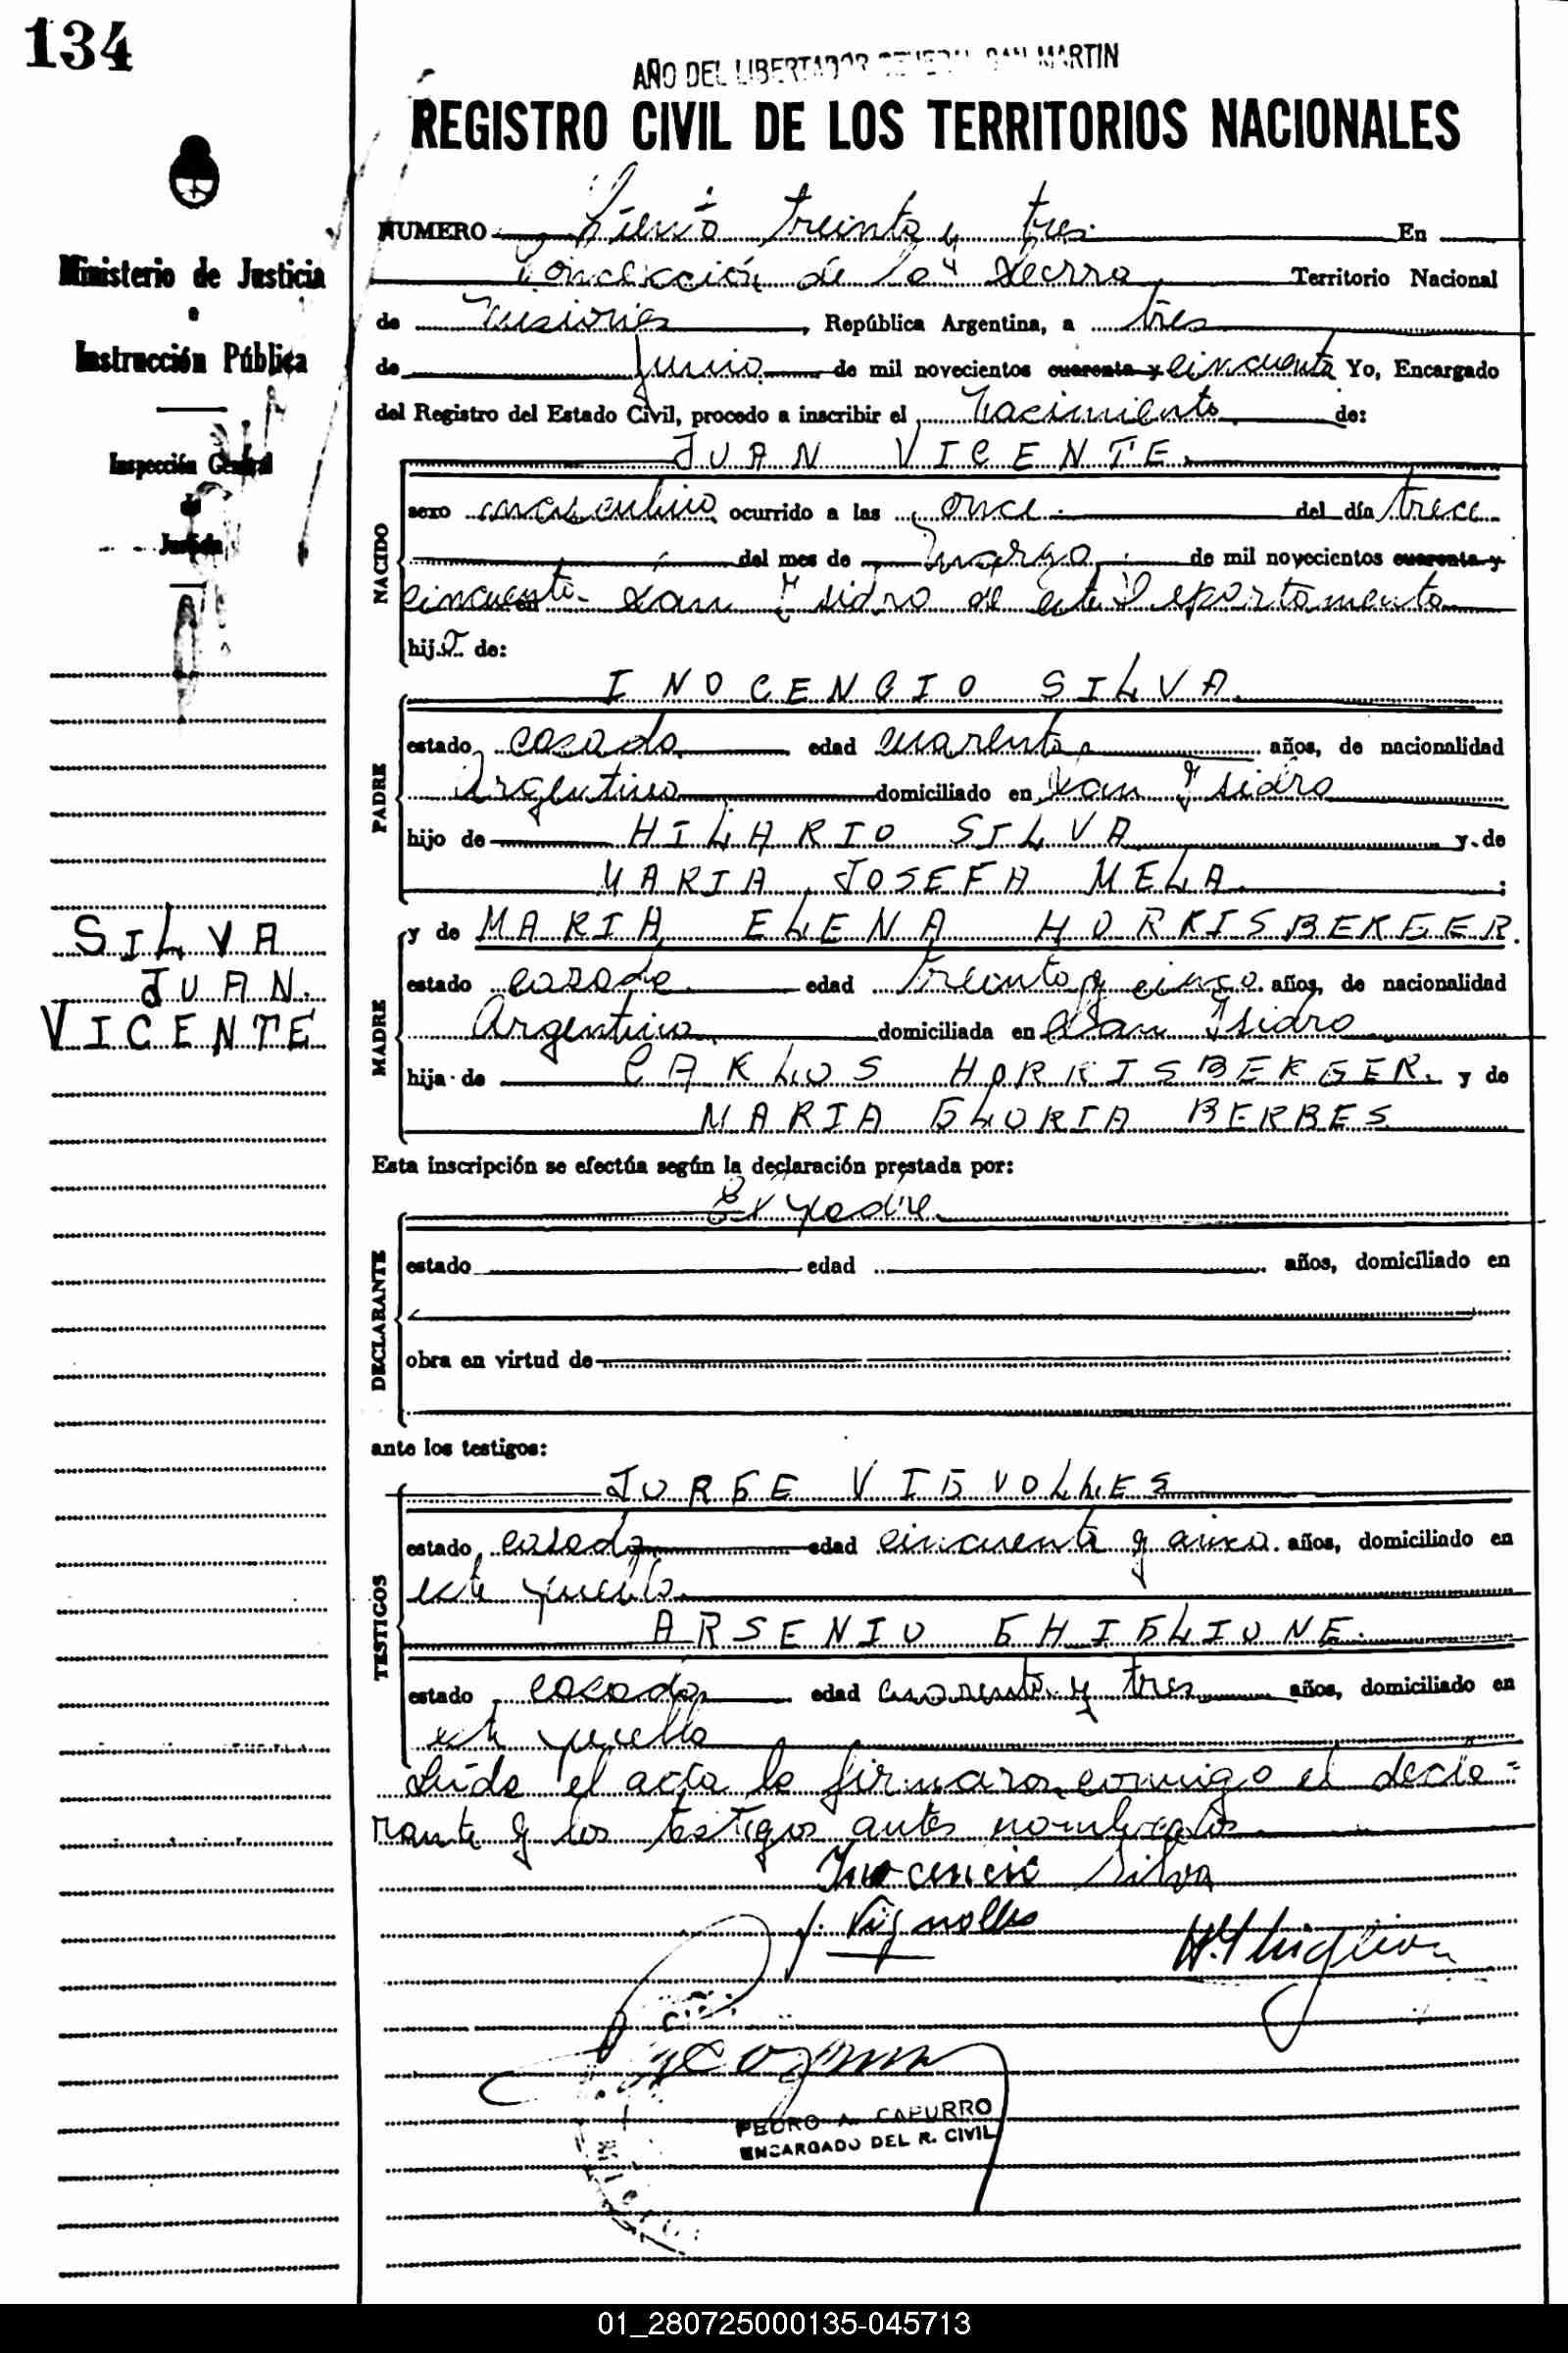 134
AÑO DEL LIBERTADOR GENERAL SAN MARTIN
REGISTRO CIVIL DE LOS TERRITORIOS NACIONALES
Ministerio de Justicia
e
Instrucción Pública
Inspección General
de
Justicia
SILVA
JUAN
VICENTE
NUMERO Ciento treinta y tres En
Concepción de la Sierra Territorio Nacional
de Misiones, República Argentina, a tres
de Junio de mil novecientos cuarenta y cincuenta Yo, Encargado
del Registro del Estado Civil, procedo a inscribir el Nacimiento de:
NACIDO
JUAN VICENTE
sexo masculino ocurrido a las once del día trece
del mes de marzo de mil novecientos cuarenta y
cincuenta en San Isidro de este Departamento
hijo de:
PADRE
INOCENCIO SILVA
estado casado edad cuarenta años, de nacionalidad
Argentino domiciliado en San Isidro
hijo de HILARIO SILVA y de
MARIA JOSEFA MELA ;
MADRE
y de MARIA ELENA HORRISBERGER.
estado casada edad treinta y cinco años, de nacionalidad
Argentina domiciliada en San Isidro
hija de CARLOS HORRISBERGER. y de
MARIA GLORIA BERBES
Esta inscripción se efectúa según la declaración prestada por:
DECLARANTE
El padre
estado edad años, domiciliado en
obra en virtud de
ante los testigos:
TESTIGOS
JORGE VIGNOLLES
estado casado edad cincuenta y cinco años, domiciliado en
este pueblo
ARSENIO GHIGLIONE.
estado casado edad cuarenta y tres años, domiciliado en
este pueblo
Leída el acta la firmaron conmigo el decla=
rante y los testigos antes nombrados
Inocencio Silva
J. Vignolles
PEDRO A. CAPURRO
ENCARGADO DEL R. CIVIL
01_280725000135-045713